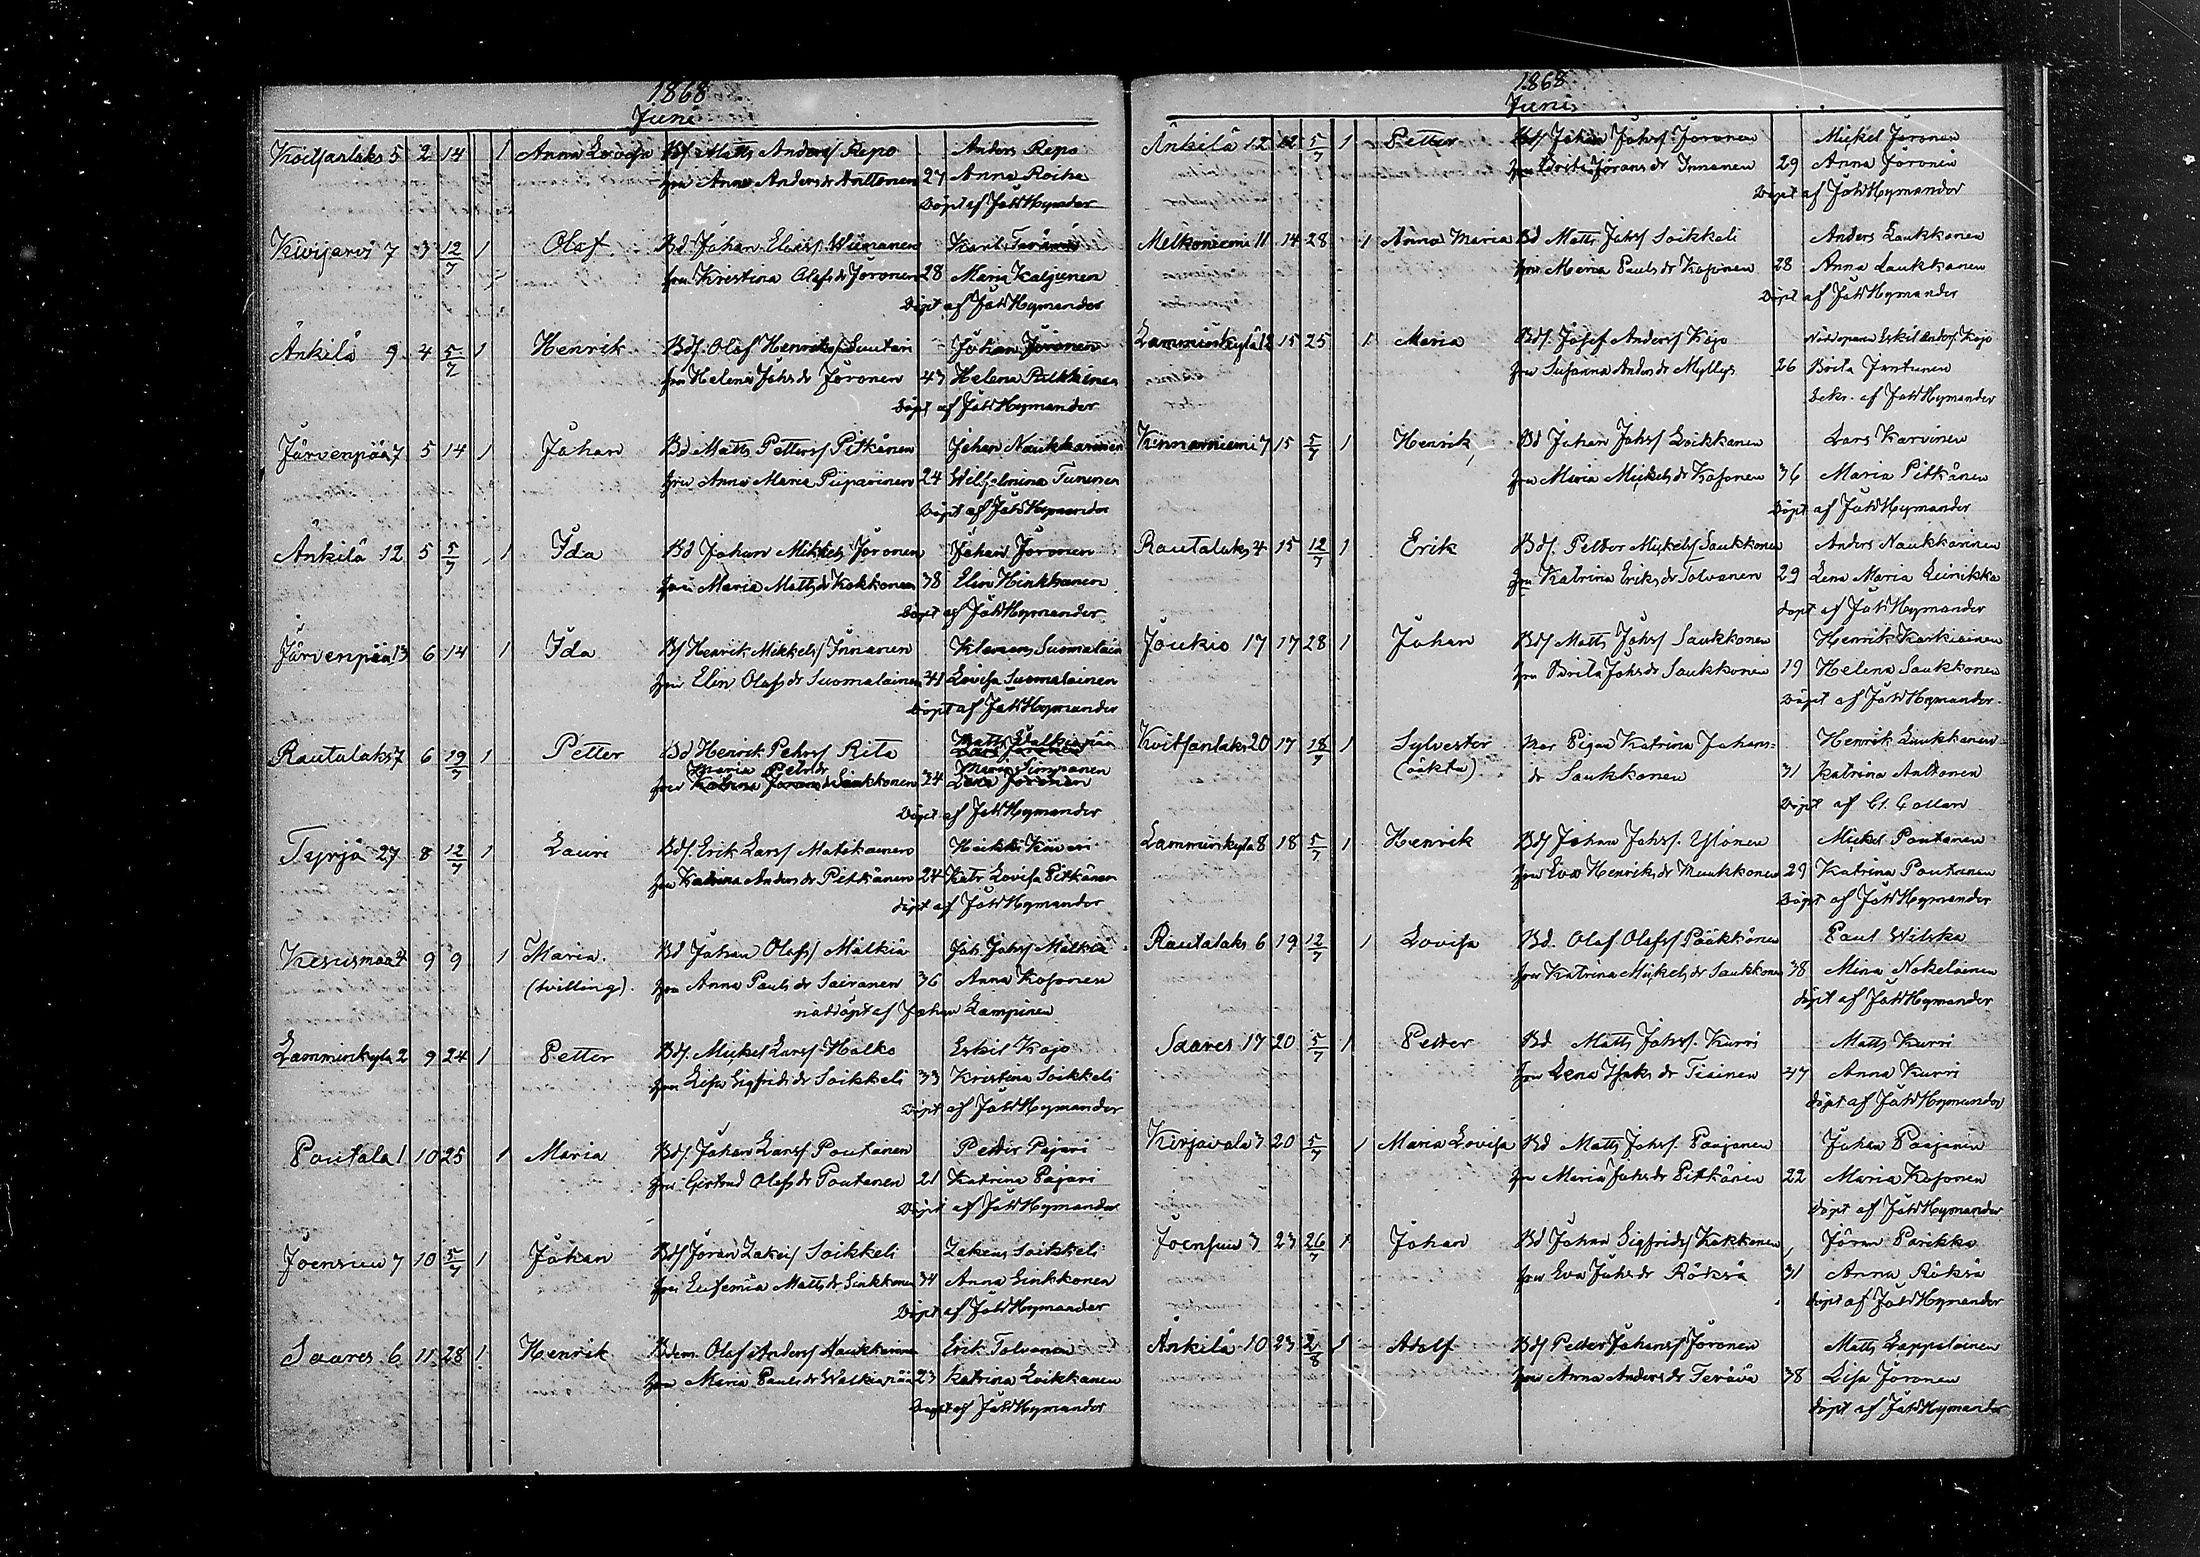 1868
Juni
Koitsanlaks 5 2 14 1 Anna Lovisa Bdf Matts Andersf Repo Anders Repo
hru Anna Andersdr Anttonen 27 Anna Roiha
Döpt af Joh Hymander
Kivijarvi 7 3 12/7 1 Olaf Bd Johan Elias Wiimanen Karl
hru Kristina Olafsdr Joronen 28 Maria Kaljunen
Döpt af Joh Hymander
Änkilä 9 4 5/7 1 Henrik Bdf. Olof Henriksf Suutari Johan Joronen
hru Helena Johsdr Joronen 43 Helena Pulkkinen
Döpt af Joh Hymander
Järvenpää 7 5 14 1 Johan Bd Matts Pettersf Pitkänen Johan Naukkarinen
hru Anna Maria Piiparinen 24 Wilhelmina Tuminen
Döpt af Joh Hymander
Änkilä 12 5 5/7 1 Ida Bd Johan Mikkelsf Joronen Johan Joronen
hru Maria Mattsdr Kokkonen 38 Elin Hinkkanen
Döpt af Joh Hymander
Järvenpää 13 6 14 1 Ida Bf Henrik Mikkelsf Innanen Klemens Suomalain
hru Elin Olafsdr Suomalainen 41 Lovisa Suomalainen
Döpt af Joh Hymander
Rautalaks 7 6 19/7 1 Petter Bd Henrik Pehrsf Rita Matts Walkiapää
Maria Petrdr Maria Simpanen
hru Katrina Joransdr Saukkonen 34 Lena Joronen
Döpt af Joh Hymander
Tyrjä 27 8 12/7 1 Lauri Bdf. Erik Larsf Matikainen Heikki Kiiveri
hru Katrina Andersdr Pitkänen 24 Katr Lovisa Pitkänen
döpt af Joh Hymander
Kesusmaa 4 9 9 1 Maria. Bd Johan Olofsf Mälkiä Joh. Johsf Mälkiä
(tvilling). hru Anna Paulsdr Sairanen 36 Anna Kosonen
nöddöpt af Johan Lampinen
Lamminkylä 2 9 24 1 Petter Bdf. Mickel Larsf Halko Eskil Kojo
hru Lisa Sigfridsdr Soikkeli 33 Kristina Soikkeli
Döpt af Joh Hymander
Poutala 1 10 25 1 Maria Bdf. Johan Larsf Poutanen Petter Pajari
hru Gertrud Olafsdr Poutanen 21 Katrina Pajari
Döpt af Joh Hymander
Joensuu 7 10 5/7 1 Johan Bdf Joran Zakeif Soikkeli Zakeus Soikkeli
hru Eufemia Mattsdr Sinkkonen 34 Anna Sinkkonen
Döpt af Joh Hymander
Saares 6 11 28 1 Henrik Bdem. Olof Andersf Naukkarinen Erik Tolvanen
hru Maria Paulsdr Walkiapää 23 Katrina Loikkanen
Döpt af Joh Hymander
1868
Juni
Änkilä 12 12 5/7 1 Petter Bdf Johan Johsf Joronen Mickel Joronen
hru Brita Joransdr Innanen 29 Anna Joronen
Döpt af Joh Hymander
Melkoniemi 11 14 28 1 Anna Maria Bd Matts Johsf Soikkeli Anders Laukkanen
hru Maria Paulsdr Kosonen 28 Anna Laukkanen
Döpt af Joh Hymander
Lamminkylä 12 15 25 1 Maria Bdf. Josef Andersf Kojo Nöddoparen Eskil Andersf. Kojo
hru Susanna Andersdr Myllys 26 Brita Jantunen
Bekr. af Joh Hymander
Kinnarniemi 7 15 5/7 1 Henrik Bd Johan Johsf Loikkanen Lars Karvinen
hru Maria Mickelsdr Kosonen 36 Maria Pitkänen
Döpt af Joh Hymander
Rautalaks 4 15 12/7 1 Erik Bdf. Petter Mickelsf Saukkonen Anders Naukkarinen
hru Katrina Eriksdr Tolvanen 29 Lena Maria Leinikka
döpt af Joh Hymander
Joukio 17 17 28 1 Johan Bdf Matts Johsf Saukkonen Henrik Karkiainen
hru Brita Johsdr Saukkonen 19 Helena Saukkonen
Döpt af Joh Hymander.
Koitsanlaks 20 17 18/7 1 Sylvester Mor Pigan Katrina Johans= Henrik Laukkanen
(oäkta) dr Saukkonen 31 Katrina Anttonen
Döpt af Cl. Collan
Lamminkylä 8 18 5/7 1 Henrik Bdf Johan Johsf. Ylönen Mickel Poutanen
hru Eva Henriksdr Muukkonen 29 Katrina Poutanen
Döpt af Joh Hymander
Rautalaks 6 19 12/7 1 Lovisa Bd. Olof Olofsf Pääkkönen Paul Wilska
hru Katrina Mickelsdr Saukkonen 38 Mina Nokelainen
döpt af Joh Hymander
Saares 17 20 5/7 1 Petter Bd Matts Johsf. Kurri Matts Kurri
hru Lena Isaksdr Tiainen 47 Anna Kurri
döpt af Joh Hymander
Kirjavala 3 20 5/7 1 Maria Lovisa Bd Matts Johsf. Paajanen Johan Paajanen
hru Maria Johsdr Pitkänen 22 Maria Kosonen
Döpt af Joh Hymander
Joensuu 3 23 26/7 1 Johan Bd Johan Sigfridsf Kokkonen Jöran Parikka
hru Eva Johsdr Röksä 31 Anna Röksä
Döpt af Joh Hymander
Änkilä 10 23 2/8 1 Adolf Bdf Petter Johansf Joronen Matts Lappalainen
hru Anna Andersdr Terävä 38 Lisa Joronen
döpt af Joh Hymander